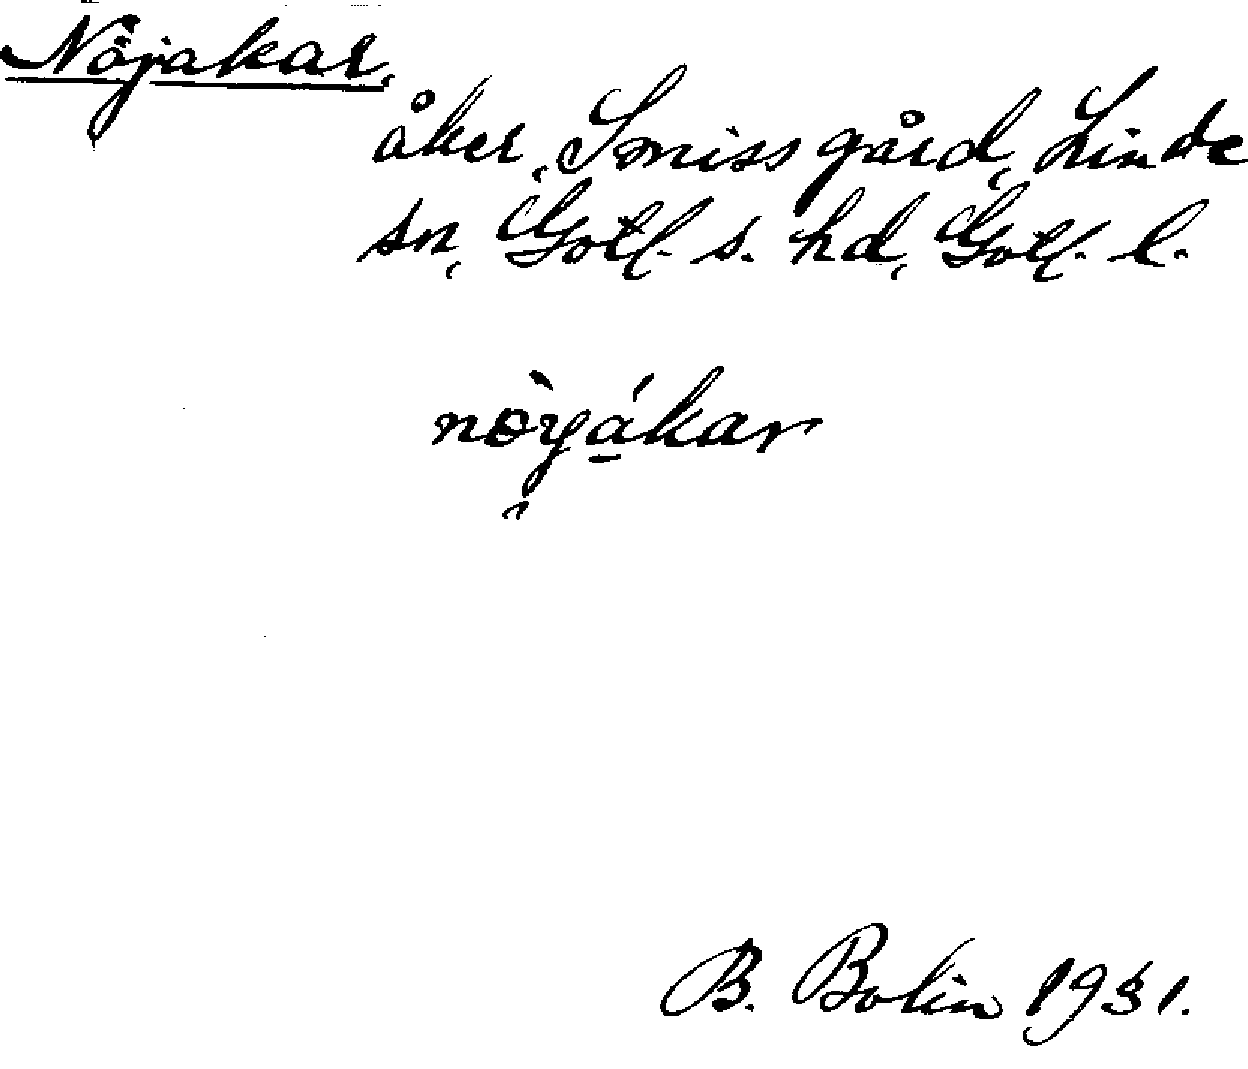 Nöjakar,
åker, Smiss gård, Linde
sn, Gotl. s. hd, Gotl. l.
nòyákar
B. Bolin 1931.